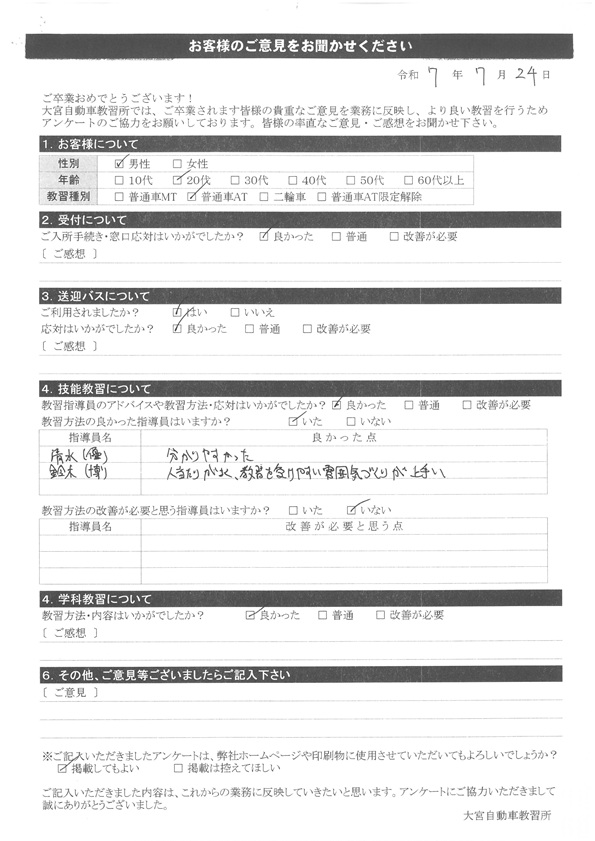 お客様のご意見をお聞かせください
令和 7 年 7 月 24 日
ご卒業おめでとうございます！
大宮自動車教習所では、ご卒業されます皆様の貴重なご意見を業務に反映し、より良い教習を行うため
アンケートのご協力をお願いしております。皆様の率直なご意見・ご感想をお聞かせ下さい。
1．お客様について
性別 ☑男性 □女性
年齢 □10代 ☑20代 □30代 □40代 □50代 □60代以上
教習種別 □普通車MT ☑普通車AT □二輪車 □普通車AT限定解除
2．受付について
ご入所手続き・窓口応対はいかがでしたか？ ☑良かった □普通 □改善が必要
［ ご感想 ］
3．送迎バスについて
ご利用されましたか？ ☑はい □いいえ
応対はいかがでしたか？ ☑良かった □普通 □改善が必要
［ ご感想 ］
4．技能教習について
教習指導員のアドバイスや教習方法・応対はいかがでしたか？ ☑良かった □普通 □改善が必要
教習方法の良かった指導員はいますか？ ☑いた □いない
指導員名 良かった点
清水（優） 分かりやすかった
鈴木（博） 人当たりがよく、教習を受けやすい雰囲気づくりが上手い
教習方法の改善が必要と思う指導員はいますか？ □いた ☑いない
指導員名 改善が必要と思う点
4．学科教習について
教習方法・内容はいかがでしたか？ ☑良かった □普通 □改善が必要
［ ご感想 ］
6．その他、ご意見等ございましたらご記入下さい
［ ご意見 ］
※ご記入いただきましたアンケートは、弊社ホームページや印刷物に使用させていただいてもよろしいでしょうか？
☑掲載してもよい □掲載は控えてほしい
ご記入いただきました内容は、これからの業務に反映していきたいと思います。アンケートにご協力いただきまして
誠にありがとうございました。
大宮自動車教習所